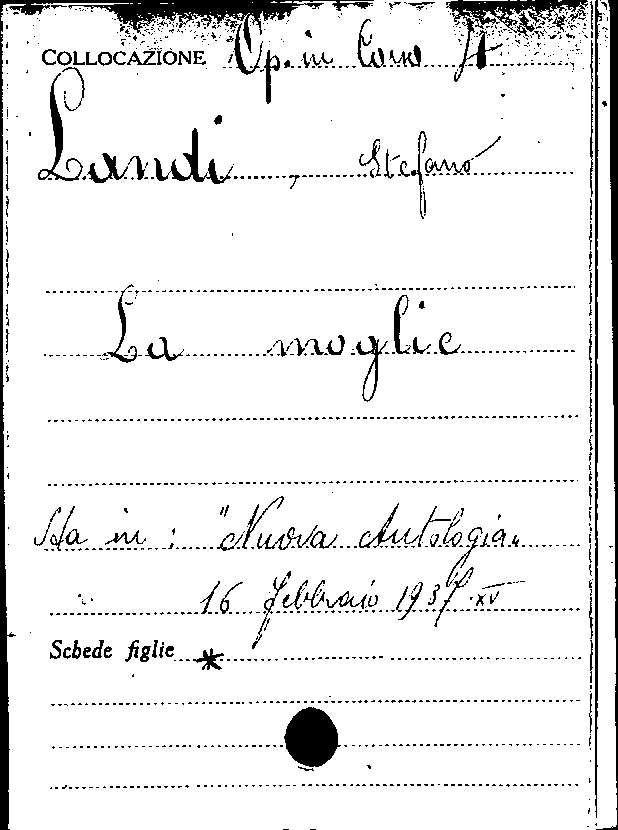 COLLOCAZIONE Op. in Corso
Landi, Stefano
La moglie
Sta in: "Nuova Antologia"
16 febbraio 1937.XV
Schede figlie *